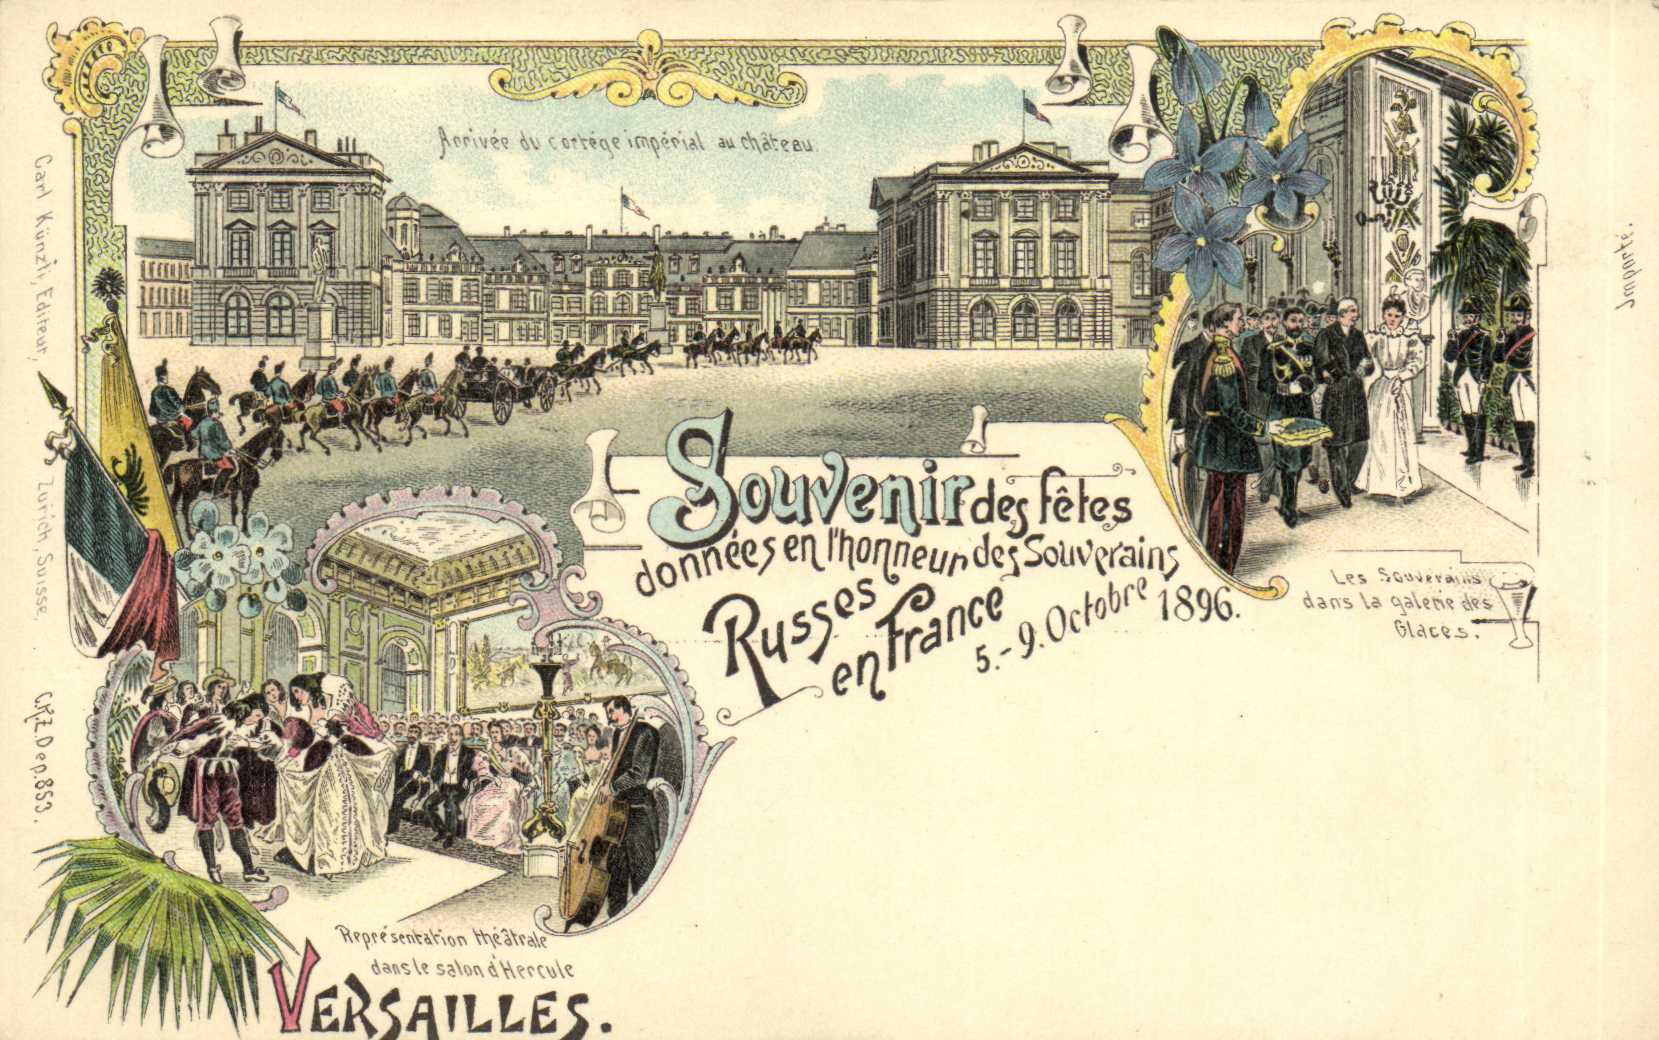 Arrivée du cortége impérial au château.
Souvenir des fêtes
données en l'honneur des Souverains
Russes
en France
5.-9. Octobre 1896.
Les Souverains
dans la galerie des
Glaces.
Représentation théâtrale
dans le salon d'Hercule
VERSAILLES.
Carl Künzli, Editeur, Zurich, Suisse.
C.K.Z. Dep. 853.
Importé.